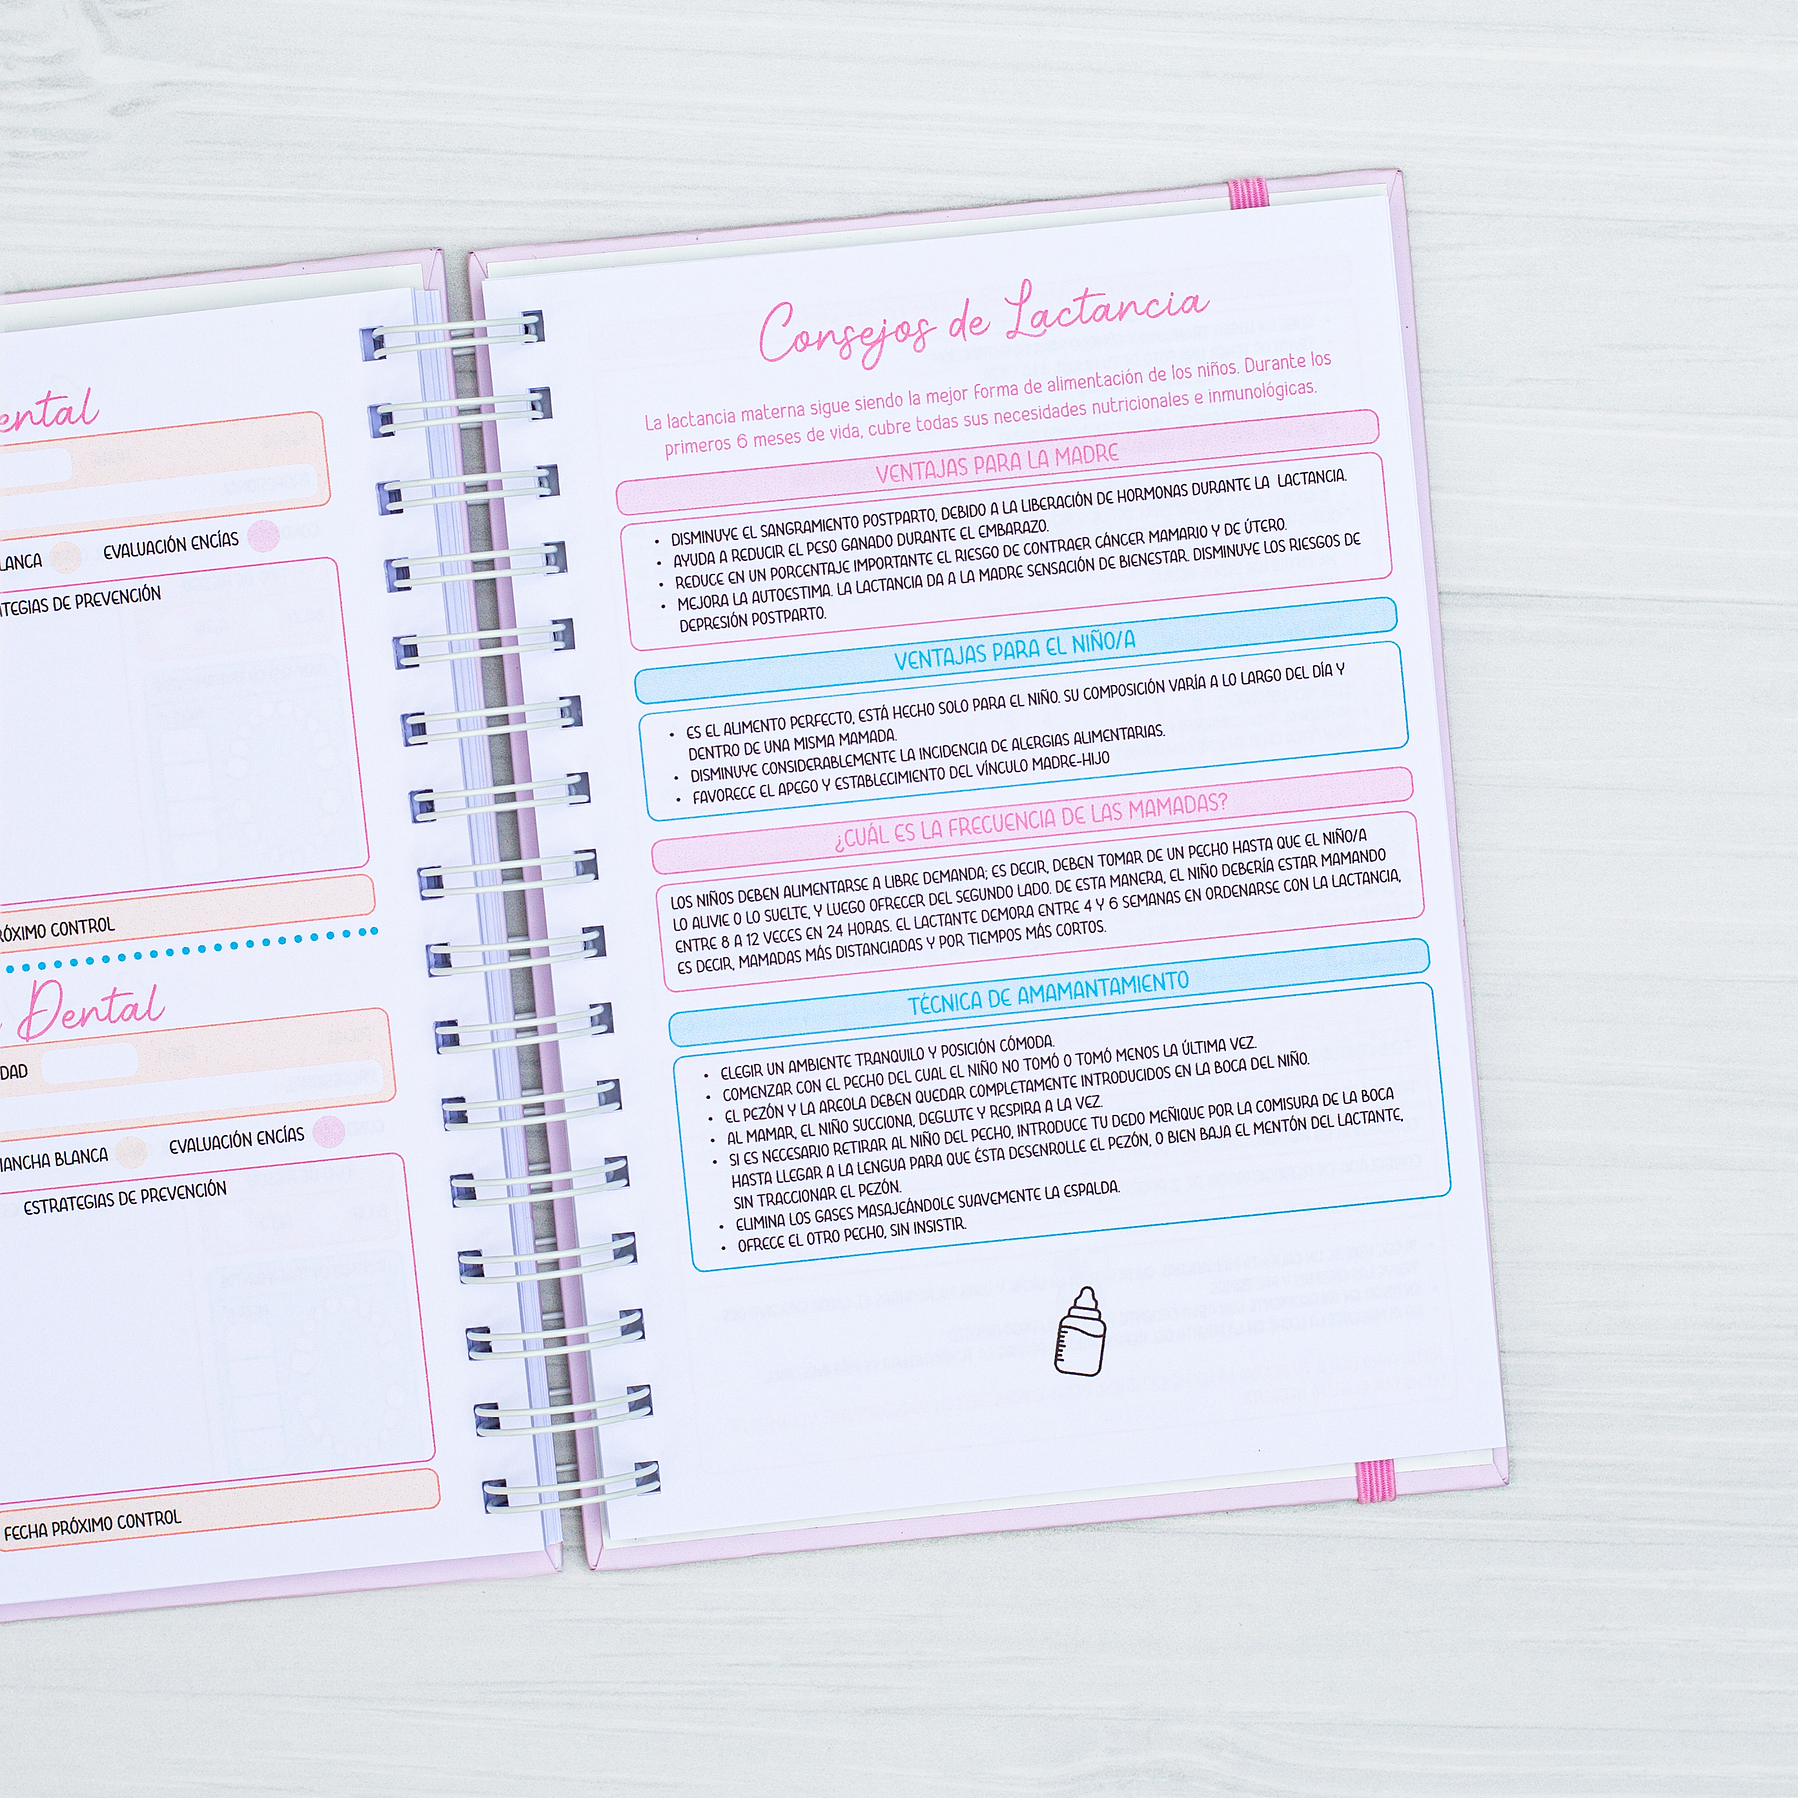 LANCA
EVALUACIÓN ENCÍAS
TEGIAS DE PREVENCIÓN
RÓXIMO CONTROL
Dental
DAD
MANCHA BLANCA
EVALUACIÓN ENCÍAS
ESTRATEGIAS DE PREVENCIÓN
FECHA PRÓXIMO CONTROL
Consejos de Lactancia
La lactancia materna sigue siendo la mejor forma de alimentación de los niños. Durante los
primeros 6 meses de vida, cubre todas sus necesidades nutricionales e inmunológicas.
VENTAJAS PARA LA MADRE
• DISMINUYE EL SANGRAMIENTO POSTPARTO, DEBIDO A LA LIBERACIÓN DE HORMONAS DURANTE LA LACTANCIA.
• AYUDA A REDUCIR EL PESO GANADO DURANTE EL EMBARAZO.
• REDUCE EN UN PORCENTAJE IMPORTANTE EL RIESGO DE CONTRAER CÁNCER MAMARIO Y DE ÚTERO.
• MEJORA LA AUTOESTIMA. LA LACTANCIA DA A LA MADRE SENSACIÓN DE BIENESTAR. DISMINUYE LOS RIESGOS DE
DEPRESIÓN POSTPARTO.
VENTAJAS PARA EL NIÑO/A
• ES EL ALIMENTO PERFECTO, ESTÁ HECHO SOLO PARA EL NIÑO. SU COMPOSICIÓN VARÍA A LO LARGO DEL DÍA Y
DENTRO DE UNA MISMA MAMADA.
• DISMINUYE CONSIDERABLEMENTE LA INCIDENCIA DE ALERGIAS ALIMENTARIAS.
• FAVORECE EL APEGO Y ESTABLECIMIENTO DEL VÍNCULO MADRE-HIJO
¿CUÁL ES LA FRECUENCIA DE LAS MAMADAS?
LOS NIÑOS DEBEN ALIMENTARSE A LIBRE DEMANDA; ES DECIR, DEBEN TOMAR DE UN PECHO HASTA QUE EL NIÑO/A
LO ALIVIE O LO SUELTE, Y LUEGO OFRECER DEL SEGUNDO LADO. DE ESTA MANERA, EL NIÑO DEBERÍA ESTAR MAMANDO
ENTRE 8 A 12 VECES EN 24 HORAS. EL LACTANTE DEMORA ENTRE 4 Y 6 SEMANAS EN ORDENARSE CON LA LACTANCIA,
ES DECIR, MAMADAS MÁS DISTANCIADAS Y POR TIEMPOS MÁS CORTOS.
TÉCNICA DE AMAMANTAMIENTO
• ELEGIR UN AMBIENTE TRANQUILO Y POSICIÓN CÓMODA.
• COMENZAR CON EL PECHO DEL CUAL EL NIÑO NO TOMÓ O TOMÓ MENOS LA ÚLTIMA VEZ.
• EL PEZÓN Y LA AREOLA DEBEN QUEDAR COMPLETAMENTE INTRODUCIDOS EN LA BOCA DEL NIÑO.
• AL MAMAR, EL NIÑO SUCCIONA, DEGLUTE Y RESPIRA A LA VEZ.
• SI ES NECESARIO RETIRAR AL NIÑO DEL PECHO, INTRODUCE TU DEDO MEÑIQUE POR LA COMISURA DE LA BOCA
HASTA LLEGAR A LA LENGUA PARA QUE ÉSTA DESENROLLE EL PEZÓN, O BIEN BAJA EL MENTÓN DEL LACTANTE,
SIN TRACCIONAR EL PEZÓN.
• ELIMINA LOS GASES MASAJEÁNDOLE SUAVEMENTE LA ESPALDA.
• OFRECE EL OTRO PECHO, SIN INSISTIR.